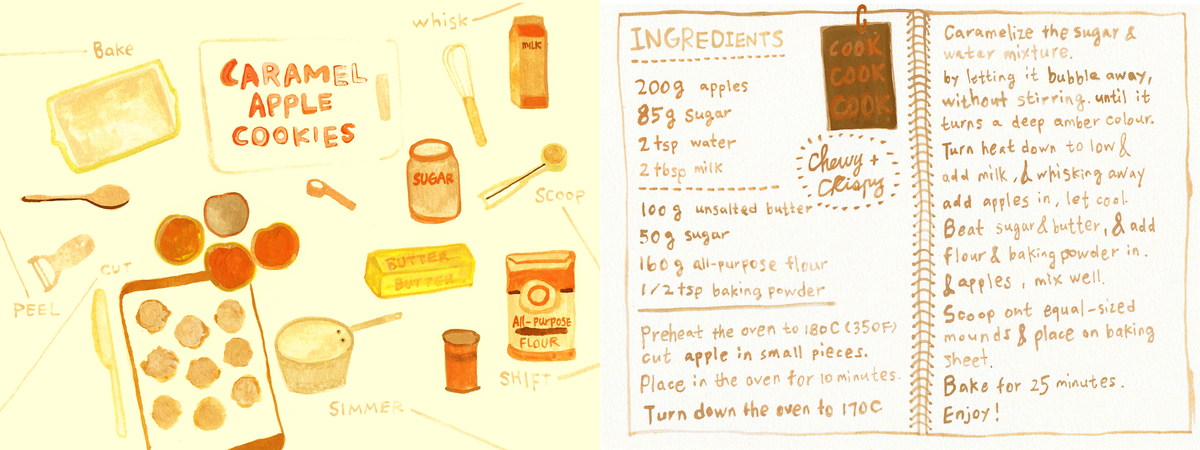 whisk
Bake
MILK
CARAMEL
APPLE
COOKIES
SUGAR
SCOOP
CUT
PEEL
BUTTER
BUTTER
All-PURPOSE
FLOUR
SHIFT
SIMMER
INGREDIENTS
200g apples
85g sugar
2 tsp water
2 tbsp milk
100g unsalted butter
50g sugar
160g all-purpose flour
1/2 tsp baking powder
COOK
COOK
COOK
Chewy +
Crispy
Preheat the oven to 180C (350F)
cut apple in small pieces.
Place in the oven for 10 minutes.
Turn down the oven to 170C
Caramelize the sugar &
water mixture.
by letting it bubble away,
without stirring. until it
turns a deep amber colour.
Turn heat down to low &
add milk, & whisking away
add apples in, let cool.
Beat sugar & butter, & add
flour & baking powder in.
& apples, mix well.
Scoop out equal-sized
mounds & place on baking
sheet.
Bake for 25 minutes.
Enjoy!